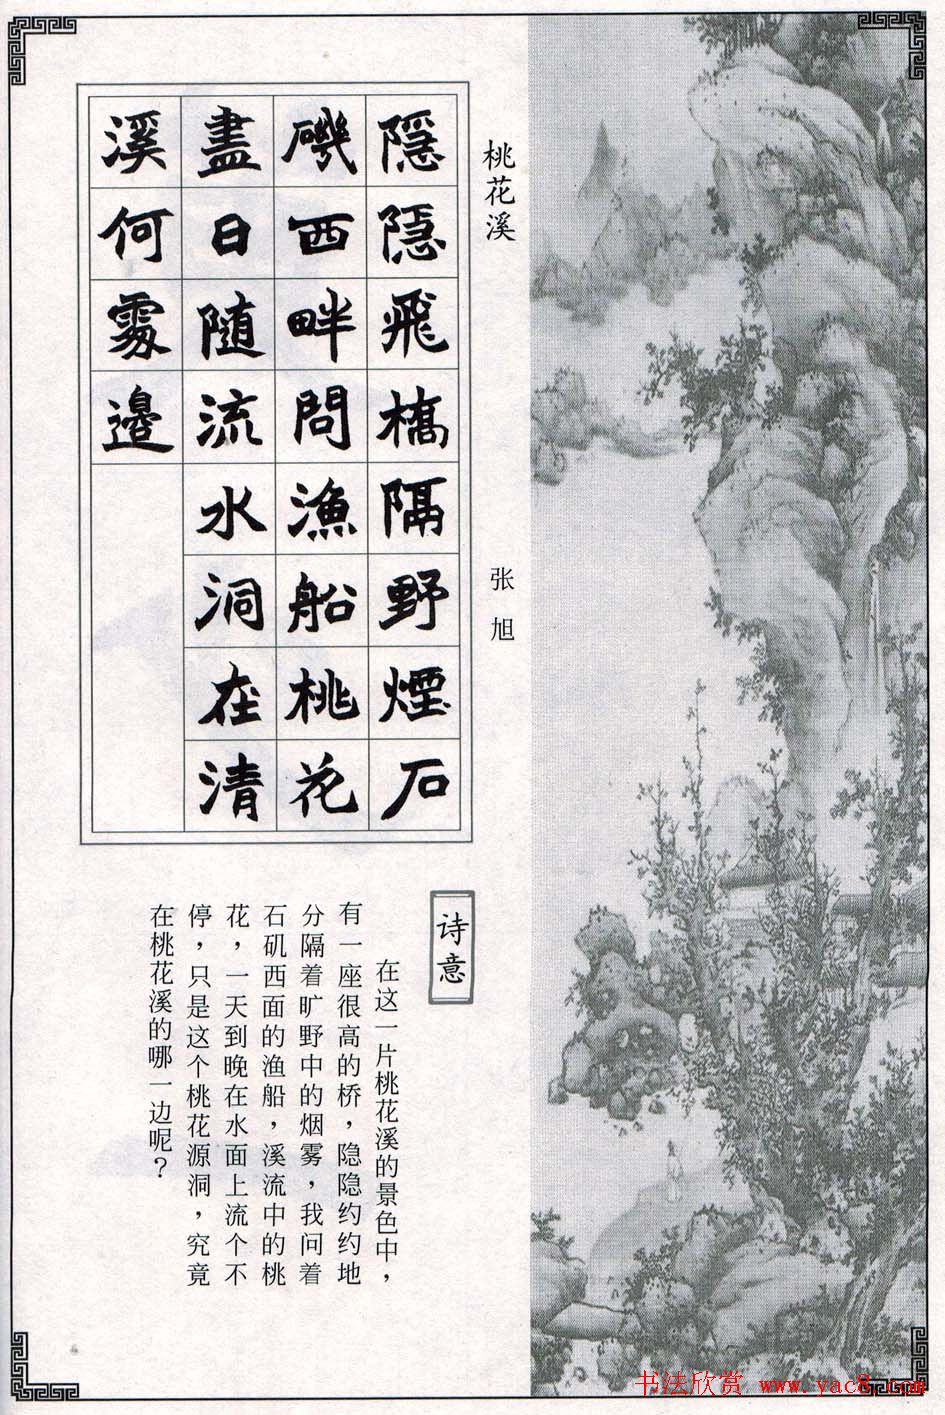 桃花溪
张旭
隱隱飛橋隔野煙石
磯西畔問漁船桃花
盡日随流水洞在清
溪何處邊
诗意
在这一片桃花溪的景色中，
有一座很高的桥，隐隐约约地
分隔着旷野中的烟雾，我问着
石矶西面的渔船，溪流中的桃
花，一天到晚在水面上流个不
停，只是这个桃花源洞，究竟
在桃花溪的哪一边呢？
书法欣赏 www.yac8.com